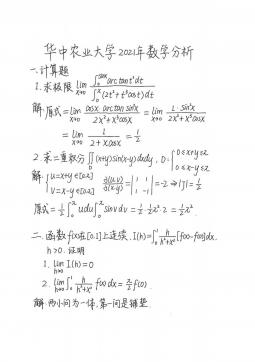 华中农业大学2021年数学分析
一.计算题
1.求极限 lim x→0 ∫₀^sinx arctan t² dt / ∫₀^x (2t²+t³cost) dt
解:原式=lim x→0 cosx·arctan sin²x / 2x²+x³cosx = lim x→0 1·sin²x / 2x²+x³cosx
= lim x→0 1 / 2+xcosx = 1/2
2.求=重积分 ∬(x+y)sin(x-y)dxdy , D: { 0≤x+y≤π 0≤x-y≤π
解: { u=x+y∈[0,π] v=x-y∈[0,π] ∂(u,v)/∂(x,y) = | 1 1 1 -1 | = -2 ⇒ |J|=1/2
原式=1/2∫₀^π udu∫₀^π sinvdv = 1/2·1/2π²·2 = 1/2π²
二.函数f(x)在[0,1]上连续. I(h)=∫₀¹ h/h²+x² [f(x)-f(0)]dx.
h>0. 证明
1. lim h→0 I(h)=0
2. lim h→0 ∫₀¹ h/h²+x² f(x)dx = π/2 f(0)
解:两小问为一体,第一问是铺垫.